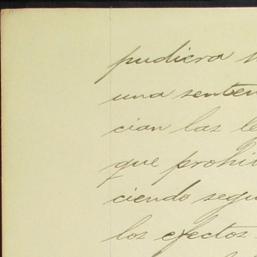 pudiera
una senten
cian las le
que prohi
ciendo segu
los efectos